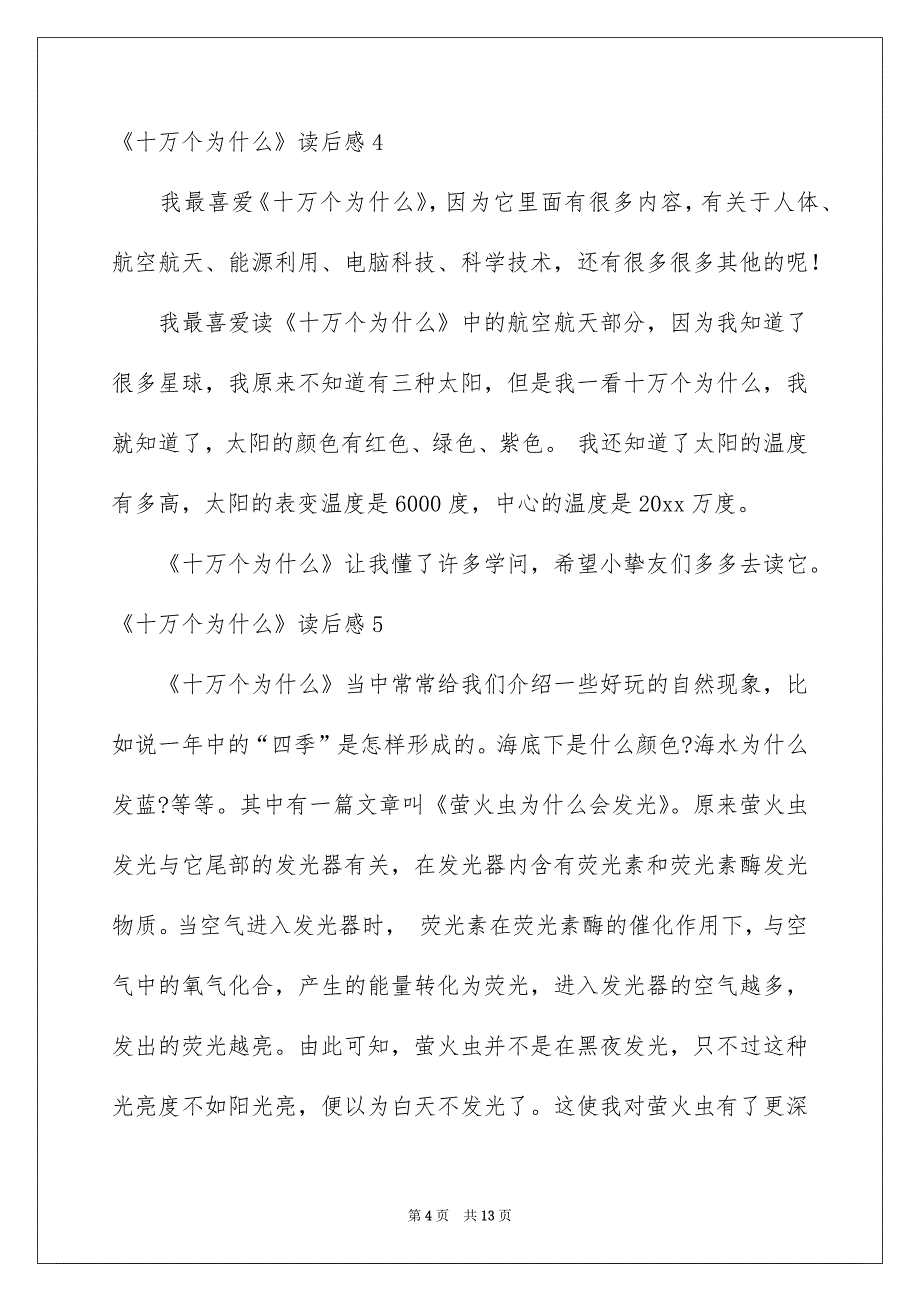 《十万个为什么》读后感4
我最喜爱《十万个为什么》，因为它里面有很多内容，有关于人体、
航空航天、能源利用、电脑科技、科学技术，还有很多很多其他的呢！
我最喜爱读《十万个为什么》中的航空航天部分，因为我知道了
很多星球，我原来不知道有三种太阳，但是我一看十万个为什么，我
就知道了，太阳的颜色有红色、绿色、紫色。 我还知道了太阳的温度
有多高，太阳的表变温度是6000度，中心的温度是20xx万度。
《十万个为什么》让我懂了许多学问，希望小挚友们多多去读它。
《十万个为什么》读后感5
《十万个为什么》当中常常给我们介绍一些好玩的自然现象，比
如说一年中的“四季”是怎样形成的。海底下是什么颜色?海水为什么
发蓝?等等。其中有一篇文章叫《萤火虫为什么会发光》。原来萤火虫
发光与它尾部的发光器有关，在发光器内含有荧光素和荧光素酶发光
物质。当空气进入发光器时， 荧光素在荧光素酶的催化作用下，与空
气中的氧气化合，产生的能量转化为荧光，进入发光器的空气越多，
发出的荧光越亮。由此可知，萤火虫并不是在黑夜发光，只不过这种
光亮度不如阳光亮，便以为白天不发光了。这使我对萤火虫有了更深
第 4 页 共 13 页